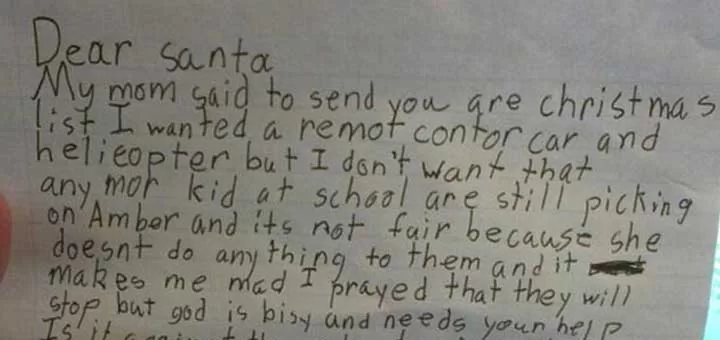 Dear santa
My mom said to send you are christmas
list I wanted a remot contor car and
helicopter but I don't want that
any mor kid at school are still picking
on Amber and its not fair because she
doesnt do any thing to them and it
makes me mad I prayed that they will
stop but god is bisy and needs your help
Is it